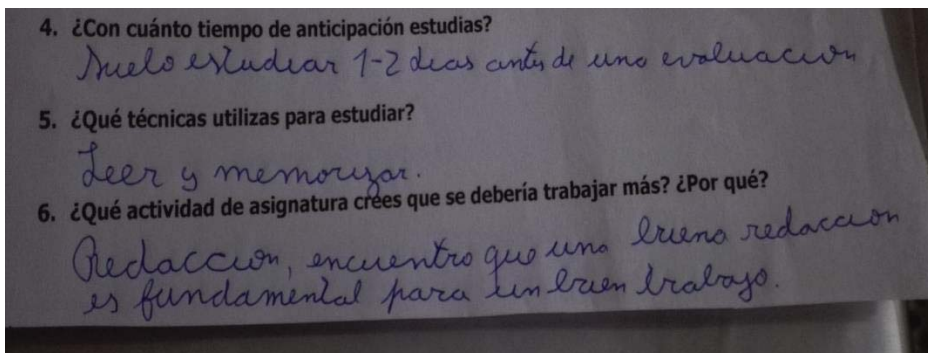 4. ¿Con cuánto tiempo de anticipación estudias?
Suelo estudiar 1-2 dias antes de una evaluacion
5. ¿Qué técnicas utilizas para estudiar?
Leer y memorizar.
6. ¿Qué actividad de asignatura crees que se debería trabajar más? ¿Por qué?
Redaccion, encuentro que una buena redaccion
es fundamental para un buen trabajo.